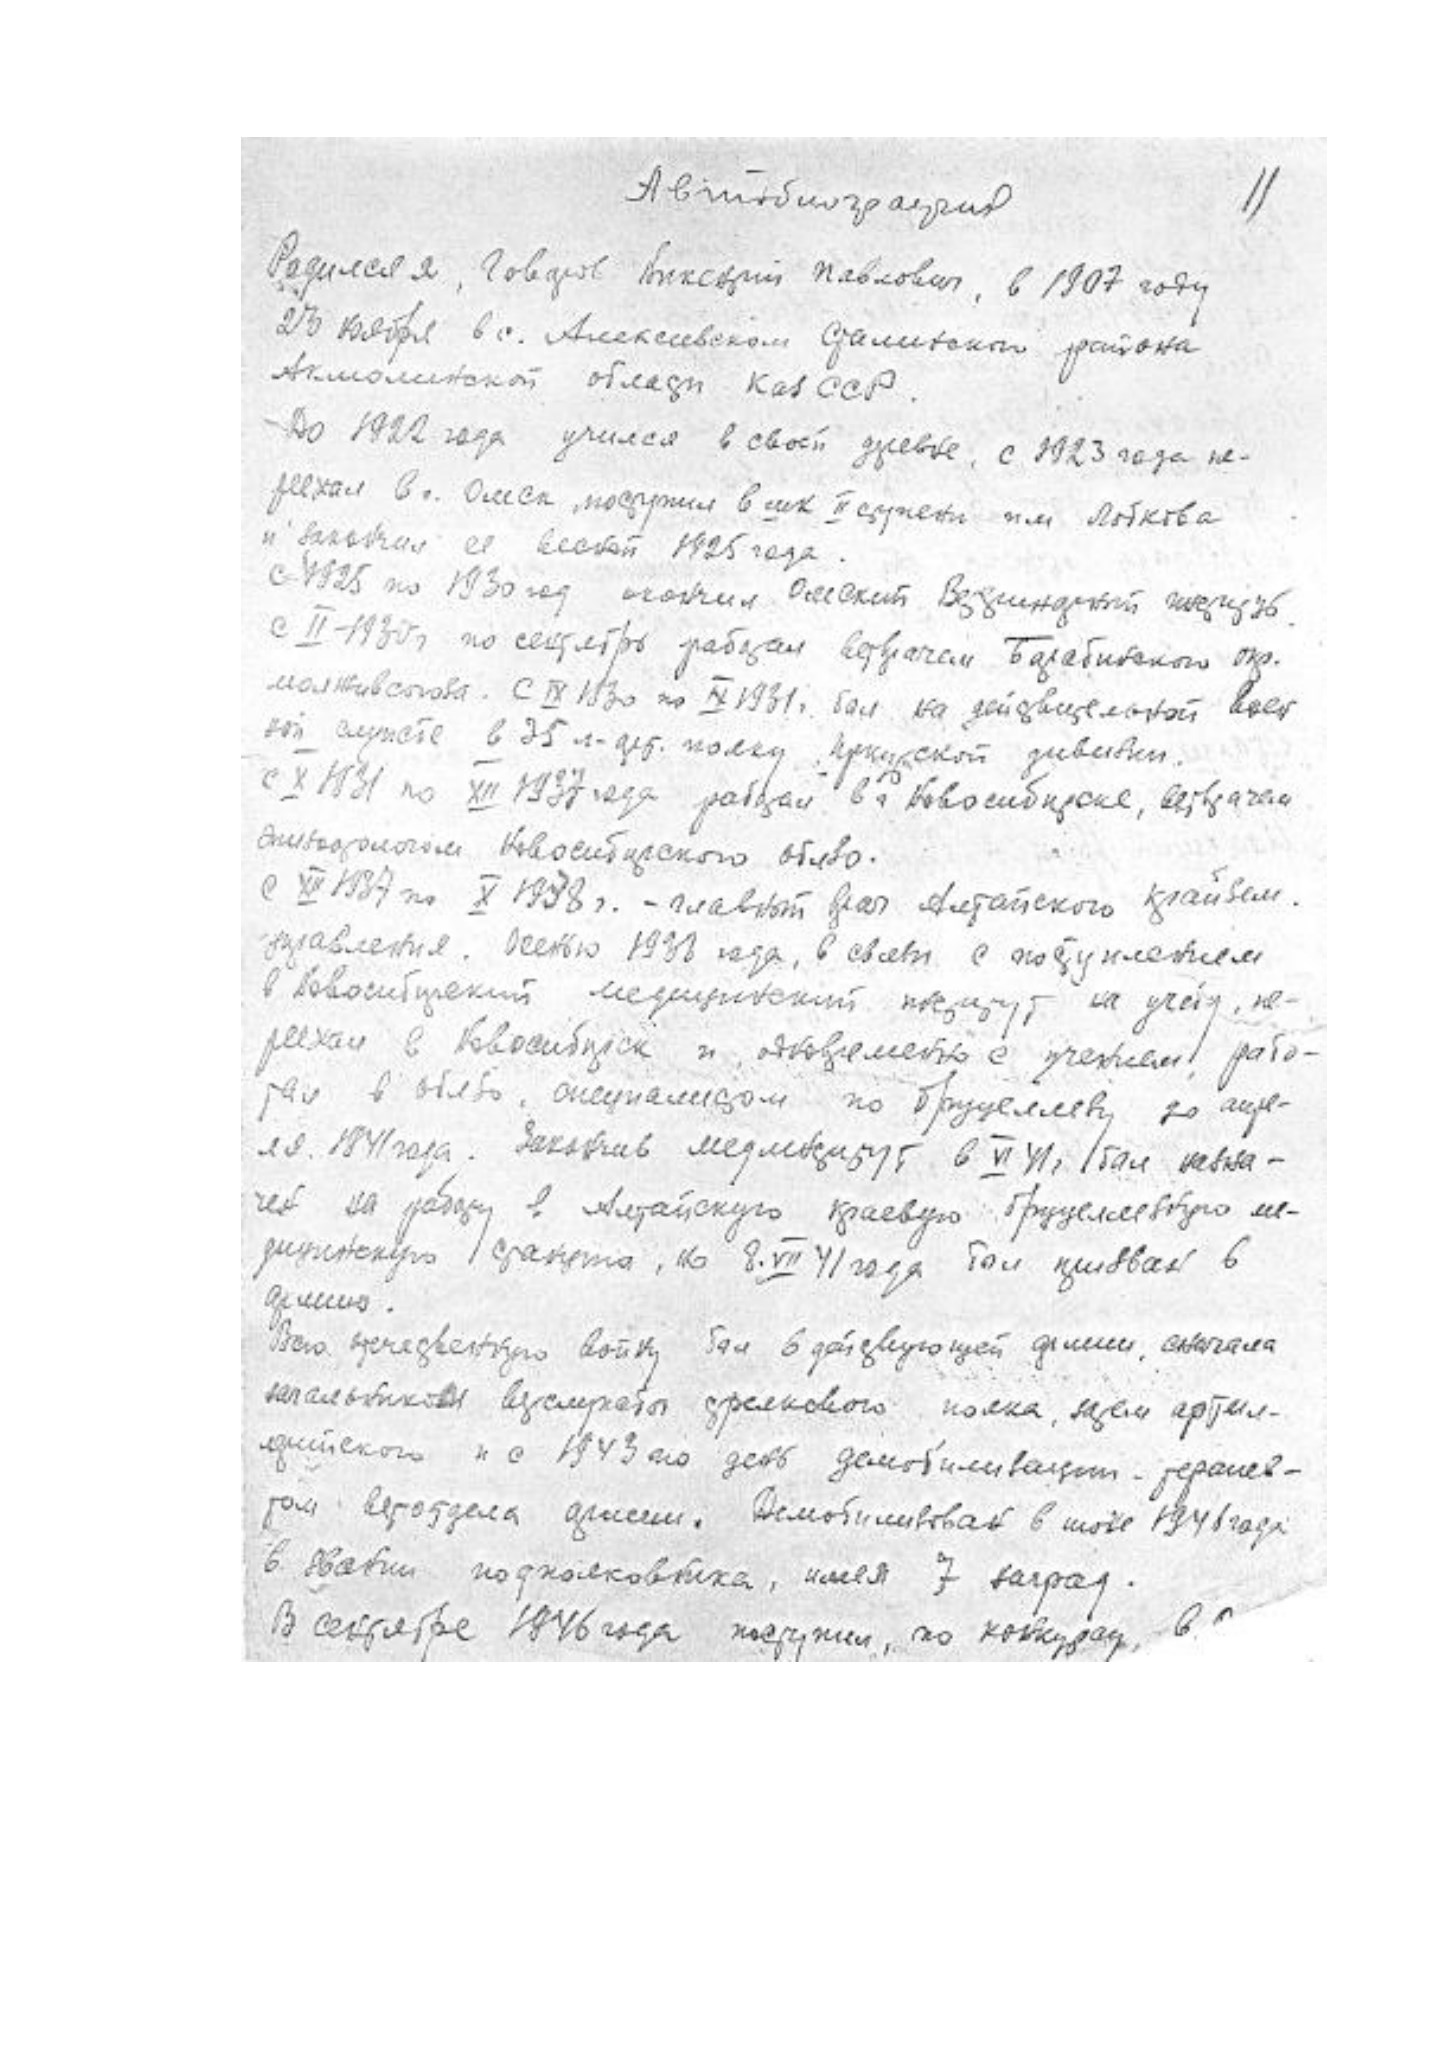 Автобиография 11
Родился я, Говоров Викентий Павлович, в 1907 году
23 ноября в с. Алексеевском Сталинского района
Акмолинской области Каз ССР.
До 1922 года учился в своей деревне, с 1923 года пе-
реехал в г. Омск, поступил в шк II ступени им Лобкова
и закончил ее весной 1925 года.
С 1925 по 1930 год окончил Омский Ветеринарный институт.
С II-1930 г. по сентябрь работал ветврачем Барабинского окр.
молживсоюза. С IX 1930 по IX 1931 г. был на действительной воен
ной службе в 35 полку Иркутской дивизии.
С X 1931 по XII 1937 года работал в г Новосибирске, ветврачем
эпизоотологом Новосибирского облзо.
С XII 1937 по X 1938 г. - главный врач Алтайского крайзем.
управления. Осенью 1938 года, в связи с поступлением
в Новосибирский медицинский институт на учебу, пе-
реехал в Новосибирск и, одновременно с учением, рабо-
тал в облзо, специалистом по бруцеллезу до апре-
ля 1941 года. Закончив мединститут в VI 41 г. был назна-
чен на работу в Алтайскую краевую бруцеллезную ме-
дицинскую станцию, но 8.VII 41 года был призван в
армию.
Всю отечественную войну был в действующей армии, сначала
начальником ветслужбы стрелкового полка, затем артил-
лерийского и с 1943 по день демобилизации - терапев-
том ветотдела армии. Демобилизован в июне 1946 года
в звании подполковника, имея 7 наград.
В сентябре 1946 года поступил, по конкурсу, в